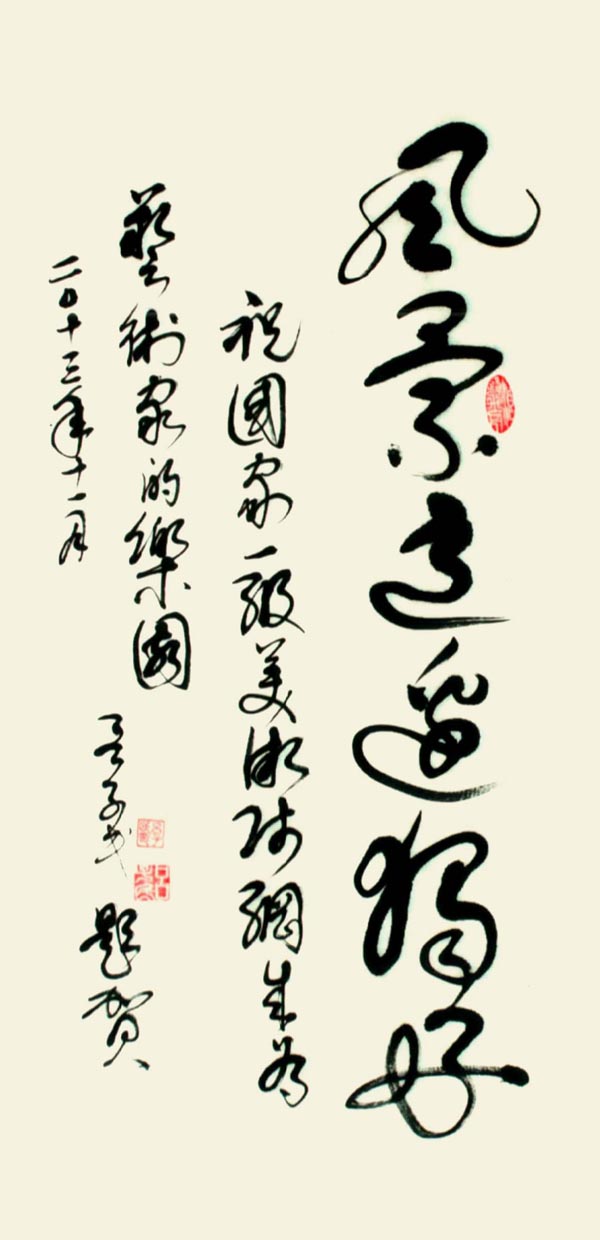 風景這邊獨好
祝國家一級美術師網成為
藝術家的樂園
二〇十三年十一月
題賀